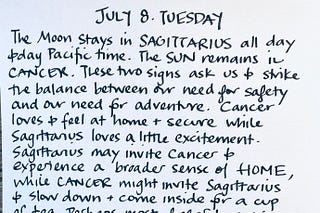 JULY 8. TUESDAY
The Moon stays in SAGITTARIUS all day
today Pacific time. The SUN remains in
CANCER. These two signs ask us to strike
the balance between our need for safety
and our need for adventure. Cancer
loves to feel at home + secure while
Sagittarius loves a little excitement.
Sagittarius may invite Cancer to
experience a broader sense of HOME,
while CANCER might invite Sagittarius
to slow down + come inside for a cup
of tea. Perhaps most